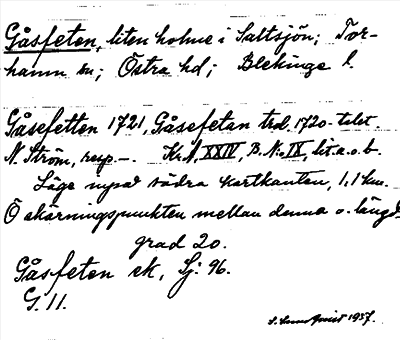 Gåsfeten, liten holme i Saltsjön; Tor-
hamn sn; Östra hd; Blekinge l.
Gåsefetten 1721, Gåsefetan trol. 1720-talet
N. Ström, resp. –. Kr.A. XXIV, B. No IX, lit. a. o. b.
Läge mga södra kartkanten, 1,1 km.
Ö skärningspunkten mellan denna o. längd-
grad 20.
Gåsfeten ek, Sj: 96.
G. 11.
1937.